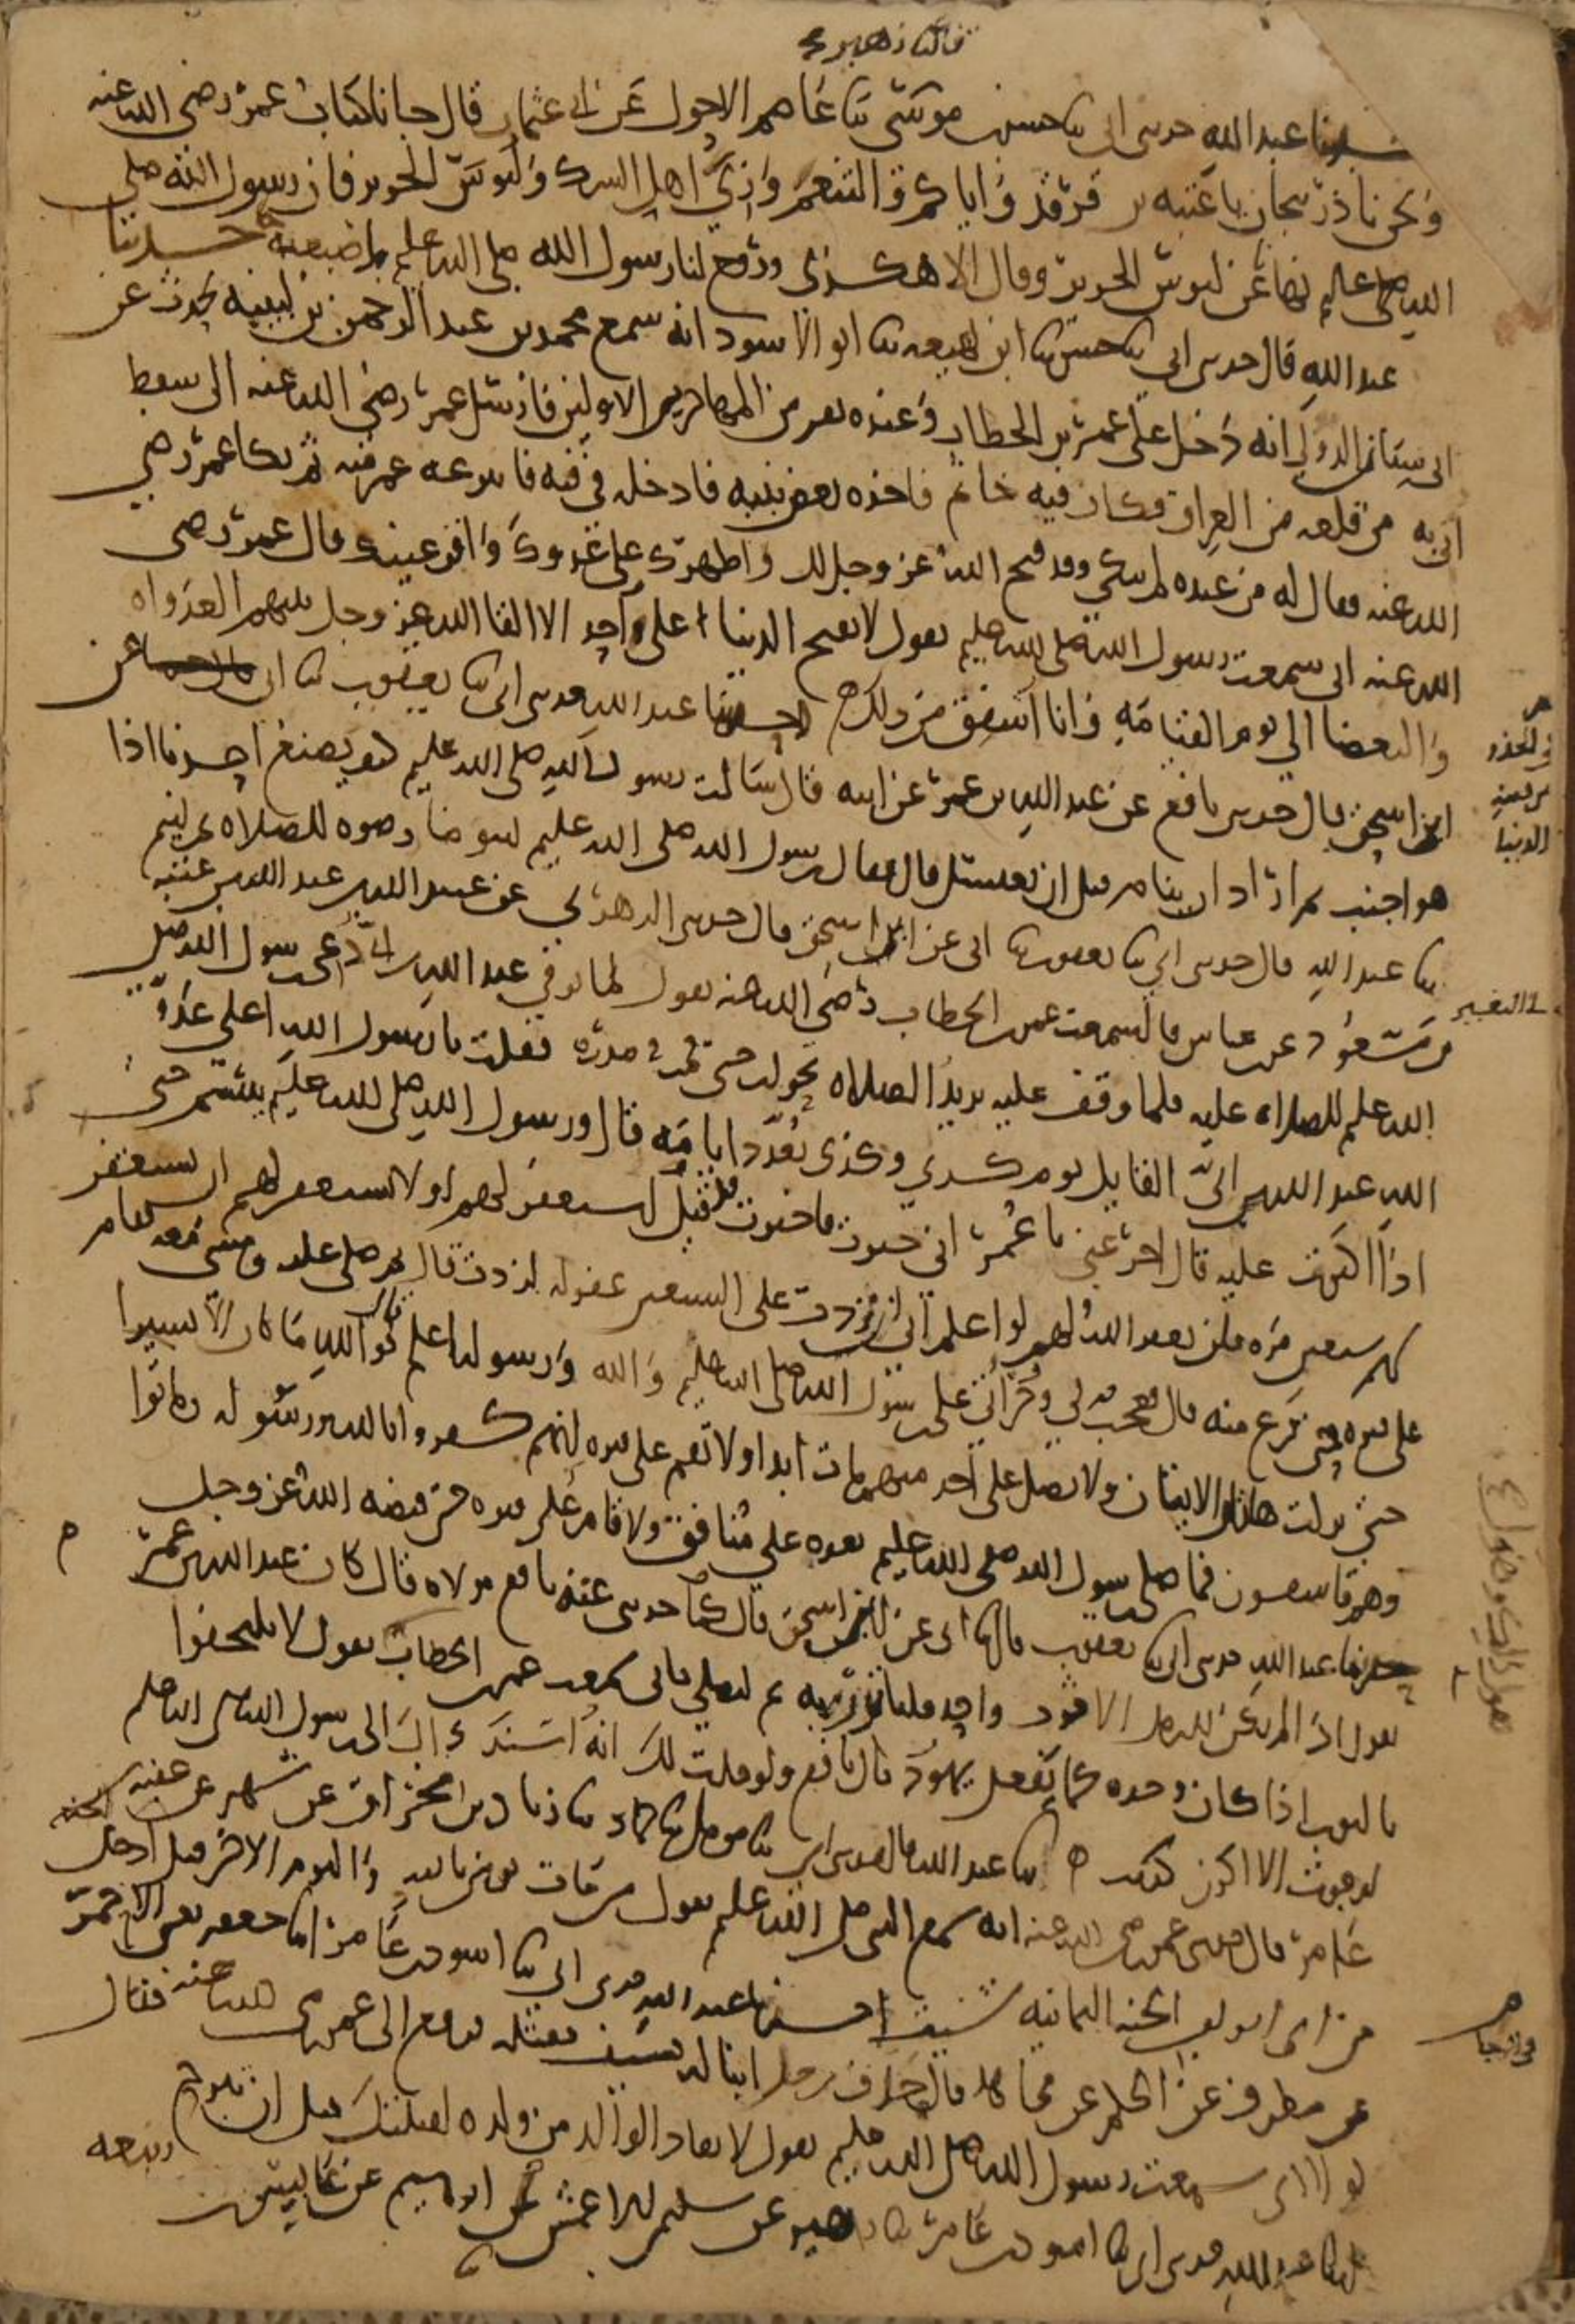 قال ثنا زهير
حدثنا عبد الله حدثني ابي ثنا حسن بن موسى ثنا عاصم الاحول عن ابي عثمان قال جانا كتاب عمر رضي الله عنه
ونحن باذربيجان يا عتبه بن فرقد واياكم والتنعم وزي اهل الشرك ولبوس الحرير فان رسول الله صلى
الله عليه نهانا عن لبوس الحرير وقال الا هكذى ورفع لنا رسول الله صلى الله عليه باصبعيه حدثنا
عبد الله قال حدثني ابي ثنا حسن ثنا ابن لهيعه ثنا ابو الاسود انه سمع محمد بن عبد الرحمن بن لبيبه يحدث عن
ابي سنان الدولي انه دخل على عمر بن الخطاب وعنده نفر من المهاجرين الاولين فارسل عمر رضي الله عنه الى سفط
اتي به من قلعه من العراق فكان فيه خاتم فاخذه بعض بنيه فادخله في فيه فانتزعه عمر منه ثم بكا عمر رضي
الله عنه فقال له من عنده لم تبكي وقد فتح الله عز وجل لك واظهرك على عدوك واقر عينك قال عمر رضي
الله عنه اني سمعت رسول الله صلى الله عليه يقول لا تفتح الدنيا على احد الا القا الله عز وجل بينهم العداوه
والبغضا الى يوم القيامه وانا اشفق من ذلك حدثنا عبد الله حدثني ابي ثنا يعقوب ثنا ابي عن
ابن اسحق قال حدثني نافع عن عبد الله بن عمر عن ابيه قال سالت رسول الله صلى الله عليه كيف يصنع احدنا اذا
هو اجنب ثم اراد ان ينام قبل ان يغتسل قال فقال رسول الله صلى الله عليه ليتوضا وضوه للصلاه ثم لينم
ثنا عبد الله قال حدثني ابي ثنا يعقوب ثنا ابي عن ابن اسحق قال حدثني الزهري عن عبيد الله بن عبد الله بن عتبه
بن مسعود عن بن عباس قال سمعت عمر بن الخطاب رضي الله عنه يقول لما توفي عبد الله بن ابي دعي رسول الله صلى
الله عليه للصلاه عليه فلما وقف عليه يريد الصلاه تحولت حتى قمت في صدره فقلت يا رسول الله اعلى عدو
الله عبد الله بن ابي القايل يوم كذي وكذى نعدد ايامه قال ورسول الله صلى الله عليه يبتسم حتى
اذا اكثرت عليه قال اخر عني يا عمر اني خيرت فاخترت قد قيل استغفر لهم او لا تستغفر لهم ان تستغفر
لهم سبعين مره فلن يغفر الله لهم لو اعلم اني ان زدت على السبعين غفر له لزدت قال ثم صلى عليه ومشى معه فقام
على قبره حتى فرغ منه قال فعجب لي وجراتي على رسول الله صلى الله عليه والله ورسوله اعلم قال فو الله ما كان الا يسيرا
حتى نزلت هاتان الايتان ولا تصل على احد منهم مات ابدا ولا تقم على قبره انهم كفروا بالله ورسوله وماتوا
وهم فاسقون فما صلى رسول الله صلى الله عليه بعده على منافق ولا قام على قبره حتى قبضه الله عز وجل
حدثنا عبد الله حدثني ابي ثنا يعقوب قال ثنا ابي عن ابن اسحق قال كما حدثني عنه نافع مولاه قال كان عبد الله بن عمر
يقول اذا لم يكن للرجل الا ثوب واحد فلياتزر به ثم ليصلي فاني سمعت عمر بن الخطاب يقول لا تلتحفوا
بالثوب اذا كان وحده كما تفعل يهود قال نافع ولو قلت لك انه اسند ذلك الى رسول الله صلى الله عليه
لرجوت الا اكون كذبت ثنا عبد الله قال حدثني ابي ثنا مومل ثنا حماد ثنا زياد بن مخراق عن شهر عن عقبه بن
عامر قال حدثني عمر رضي الله عنه انه سمع النبي صلى الله عليه يقول من مات يومن بالله واليوم الاخر قيل ادخل
من اي ابواب الجنه الثمانيه شيت حدثنا عبد الله حدثني ابي ثنا اسود بن عامر انا جعفر يعني الاحمر
عن مطرف عن الحكم عن مجاهد قال حذف رجل ابنا له بسيف فقتله فرفع الى عمر رضي الله عنه فقال
لولا اني سمعت رسول الله صلى الله عليه يقول لا يقاد الوالد من ولده لقتلتك قبل ان تبرح
ثنا عبد الله حدثني ابي ثنا اسود بن عامر ثنا زهير عن سليمن الاعمش عن ابرهيم عن عابس بن ربيعه